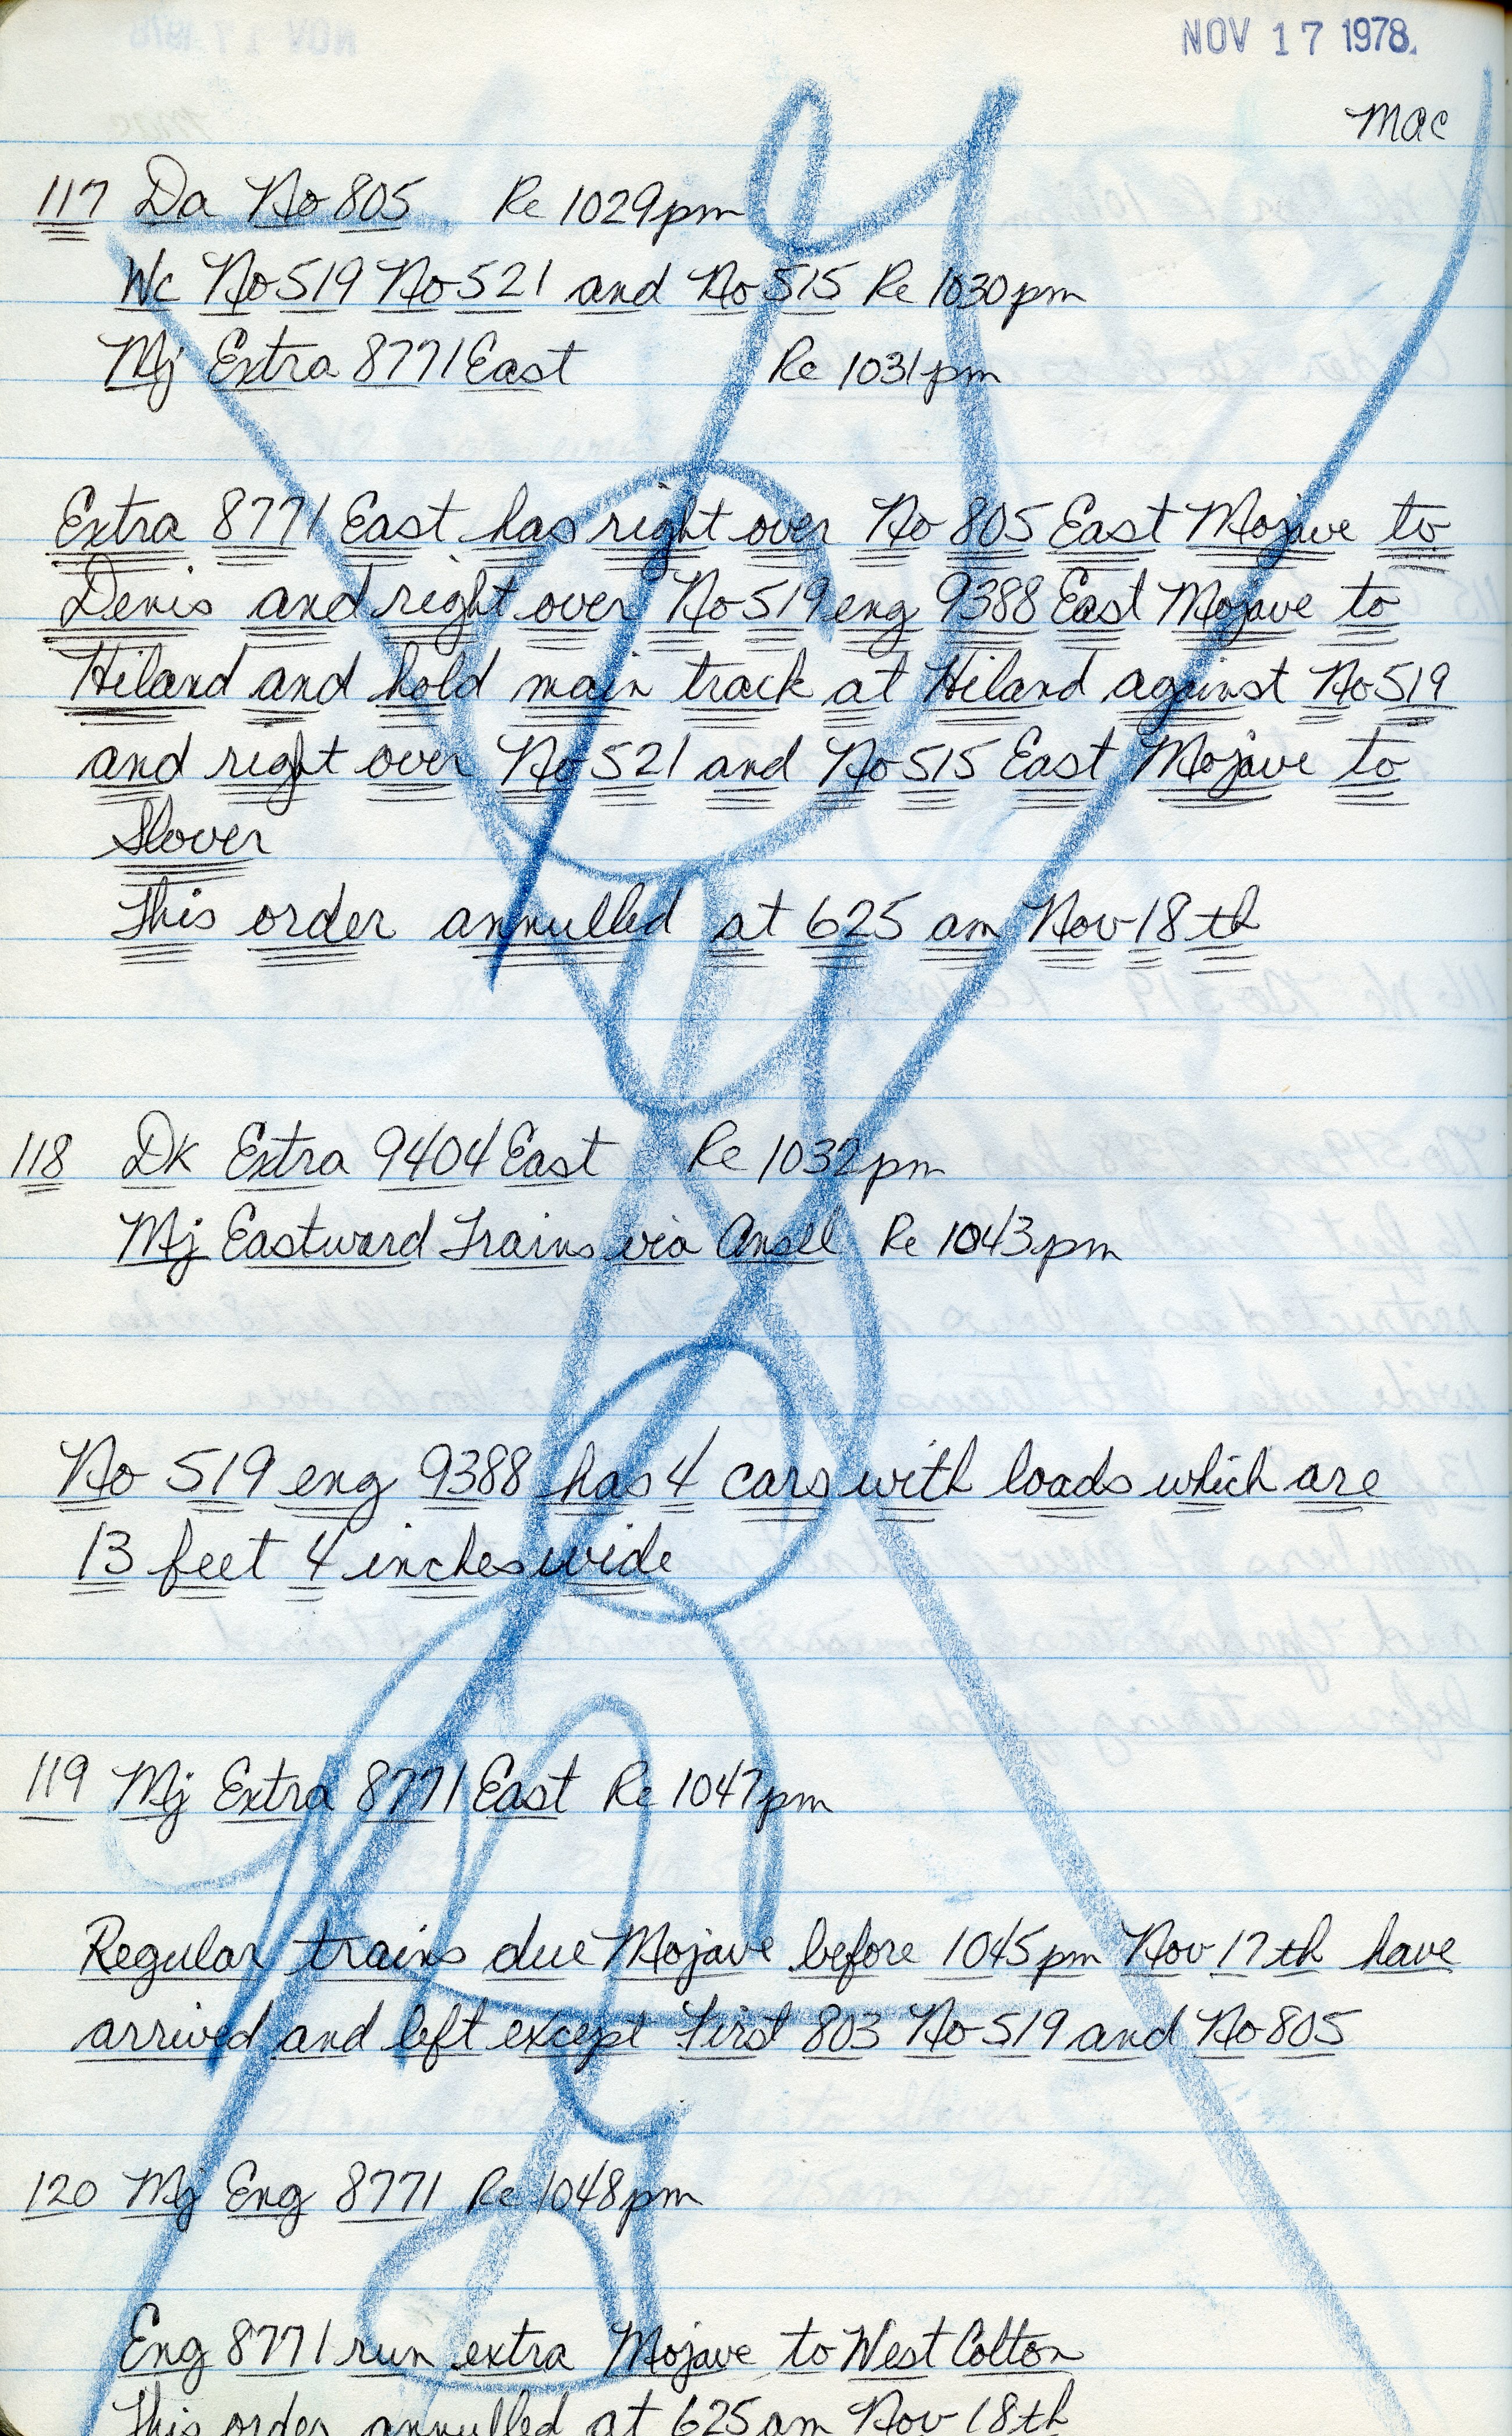 NOV 17 1978
Mac
117 Da No 805 Re 1029pm
Wc No 519 No 521 and No 515 Re 1030pm
Mj Extra 8771 East Re 1031pm
Extra 8771 East has right over No 805 East Mojave to
Denis and right over No 519 eng 9388 East Mojave to
Hiland and hold main track at Hiland against No 519
and right over No 521 and No 515 East Mojave to
Slover
This order annulled at 625 am Nov 18th
118 DK Extra 9404 East Re 1032pm
Mj Eastward Trains via Ansel Re 1043pm
No 519 eng 9388 has 4 cars with loads which are
13 feet 4 inches wide
119 Mj Extra 8771 East Re 1047pm
Regular trains due Mojave before 1045pm Nov 17th have
arrived and left except First 803 No 519 and No 805
120 Mj Eng 8771 Re 1048pm
Eng 8771 run extra Mojave to West Colton
This order annulled at 625am Nov 18th